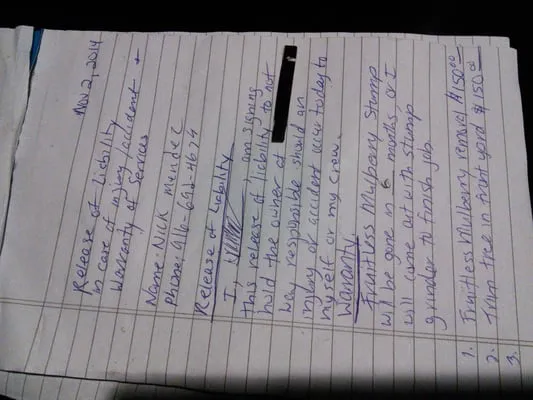 Nov 2, 2014
Release of Liability
in case of injury/accident +
Warranty of Services
Name: Nick Mendez
Phone: 916-692-4674
Release of Liability
I, am signing
this release of liability to not
hold the owner of
Way responsible should an
injury or accident occur today to
myself or my crew.
Waranty
Fruitless Mulberry Stump
will be gone in 6 months, or I
will come out with stump
grinder to finish job
1. Fruitless Mulberry removal $150.00
2. Trim tree in front yard $150.00
3.